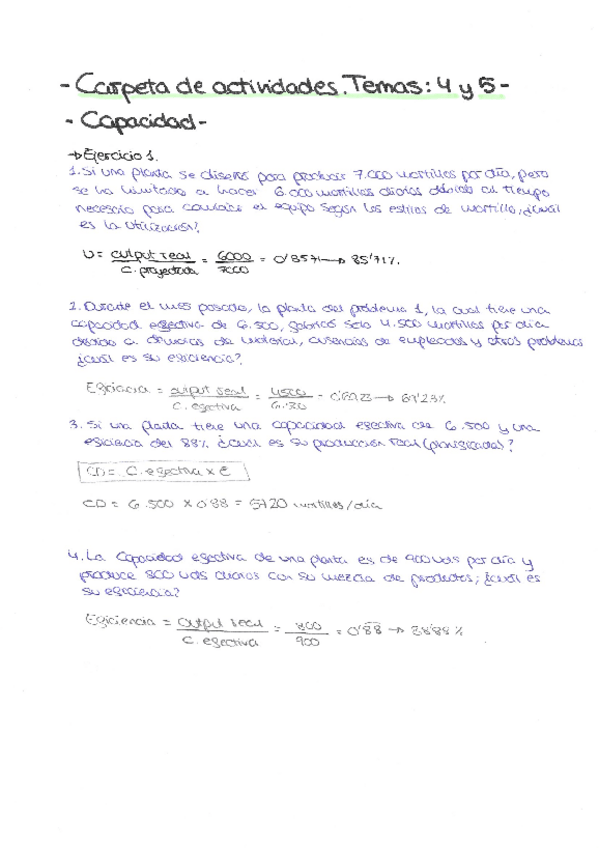 - Carpeta de actividades. Temas: 4 y 5 -
- Capacidad -
→ Ejercicio 1.
1. Si una planta se diseñó para producir 7.000 martillos por día, pero
se ha limitado a hacer 6.000 martillos diarios debido al tiempo
necesario para cambiar el equipo según los estilos de martillo, ¿cuál
es la utilización?
U = output real / C. proyectada = 6000 / 7000 = 0'8571 → 85'71%
2. Durante el mes pasado, la planta del problema 1, la cual tiene una
capacidad efectiva de 6.500, fabricó solo 4.500 martillos por día
debido a demoras de material, ausencias de empleados y otros problemas
¿cuál es su eficiencia?
Eficiencia = output real / C. efectiva = 4500 / = → 69'23%
3. Si una planta tiene una capacidad efectiva de 6.500 y una
eficiencia del 88% ¿cuál es su producción real (planificada)?
CD = C. efectiva x E
CD = 6.500 x 0'88 = 5720 martillos/día
4. La capacidad efectiva de una planta es de 900 uds por día y
produce 800 uds diarias con su mezcla de productos; ¿cuál es
su eficiencia?
Eficiencia = output real / C. efectiva = 800 / 900 = 0'88 → 88'88%